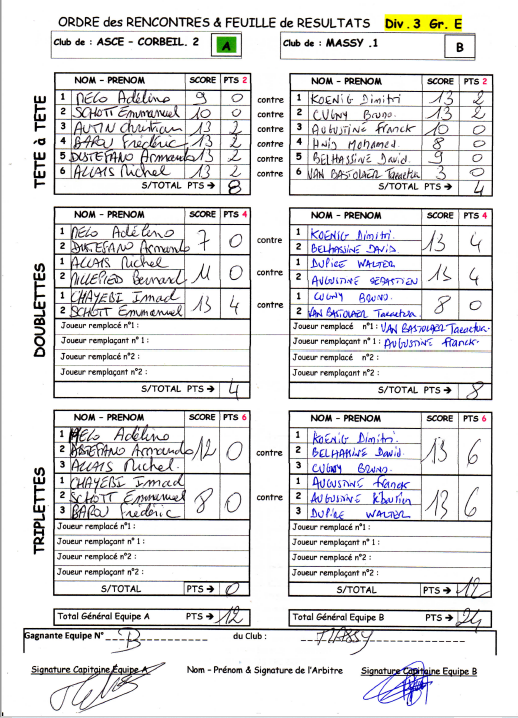 ORDRE des RENCONTRES & FEUILLE de RESULTATS Div. 3 Gr. E
Club de : ASCE - CORBEIL. 2 A Club de : MASSY .1 B
TETE à TETE
NOM - PRENOM SCORE PTS 2 NOM - PRENOM SCORE PTS 2
1 MELO Adélino 9 0 contre 1 KOENIG Dimitri 13 2
2 SCHOTT Emmanuel 10 0 contre 2 CUGNY Bruno. 13 2
3 AUTIN Christian 13 2 contre 3 AUGUSTINE Franck 10 0
4 BAROU Frédéric 13 2 contre 4 Mohamed 8 0
5 DISTEFANO Armando 13 2 contre 5 BELHASSINE David. 9 0
6 ALLAIS Michel 13 2 contre 6 VAN BASTOLAER 3 0
S/TOTAL PTS → 8 S/TOTAL PTS → 4
DOUBLETTES
NOM - PRENOM SCORE PTS 4 NOM - PRENOM SCORE PTS 4
1 MELO Adélino 7 0 contre 1 KOENIG Dimitri. 13 4
2 DISTEFANO Armando 2 BELHASSINE DAVID.
1 ALLAIS Michel 11 0 contre 1 DUPIRE WALTER 13 4
2 MILLEPIED Bernard 2 AUGUSTINE SEBASTIEN
1 CHAYEBI Imad 13 4 contre 1 CUGNY BRUNO. 8 0
2 SCHOTT Emmanuel 2 VAN BASTOLAER
Joueur remplacé n°1 : Joueur remplacé n°1 : VAN BASTOLAER
Joueur remplaçant n°1 : Joueur remplaçant n° 1 : AUGUSTINE Franck.
Joueur remplacé n°2 : Joueur remplacé n°2 :
Joueur remplaçant n°2 : Joueur remplaçant n°2 :
S/TOTAL PTS → 4 S/TOTAL PTS → 8
TRIPLETTES
NOM - PRENOM SCORE PTS 6 NOM - PRENOM SCORE PTS 6
1 MELO Adélino 12 0 contre 1 KOENIG Dimitri. 13 6
2 DISTEFANO Armando 2 BELHASSINE David.
3 ALLAIS Michel. 3 CUGNY BRUNO.
1 CHAYEBI Imad 8 0 contre 1 AUGUSTINE Franck 13 6
2 SCHOTT Emmanuel 2 AUGUSTINE
3 BAROU Frédéric 3 DUPIRE WALTER
Joueur remplacé n°1 : Joueur remplacé n°1 :
Joueur remplaçant n°1 : Joueur remplaçant n° 1 :
Joueur remplacé n°2 : Joueur remplacé n°2 :
Joueur remplaçant n°2 : Joueur remplaçant n°2 :
S/TOTAL PTS → 0 S/TOTAL PTS → 12
Total Général Equipe A PTS → 12 Total Général Equipe B PTS → 24
Gagnante Equipe N° B du Club : MASSY
Signature Capitaine Equipe A Nom - Prénom & Signature de l'Arbitre Signature Capitaine Equipe B